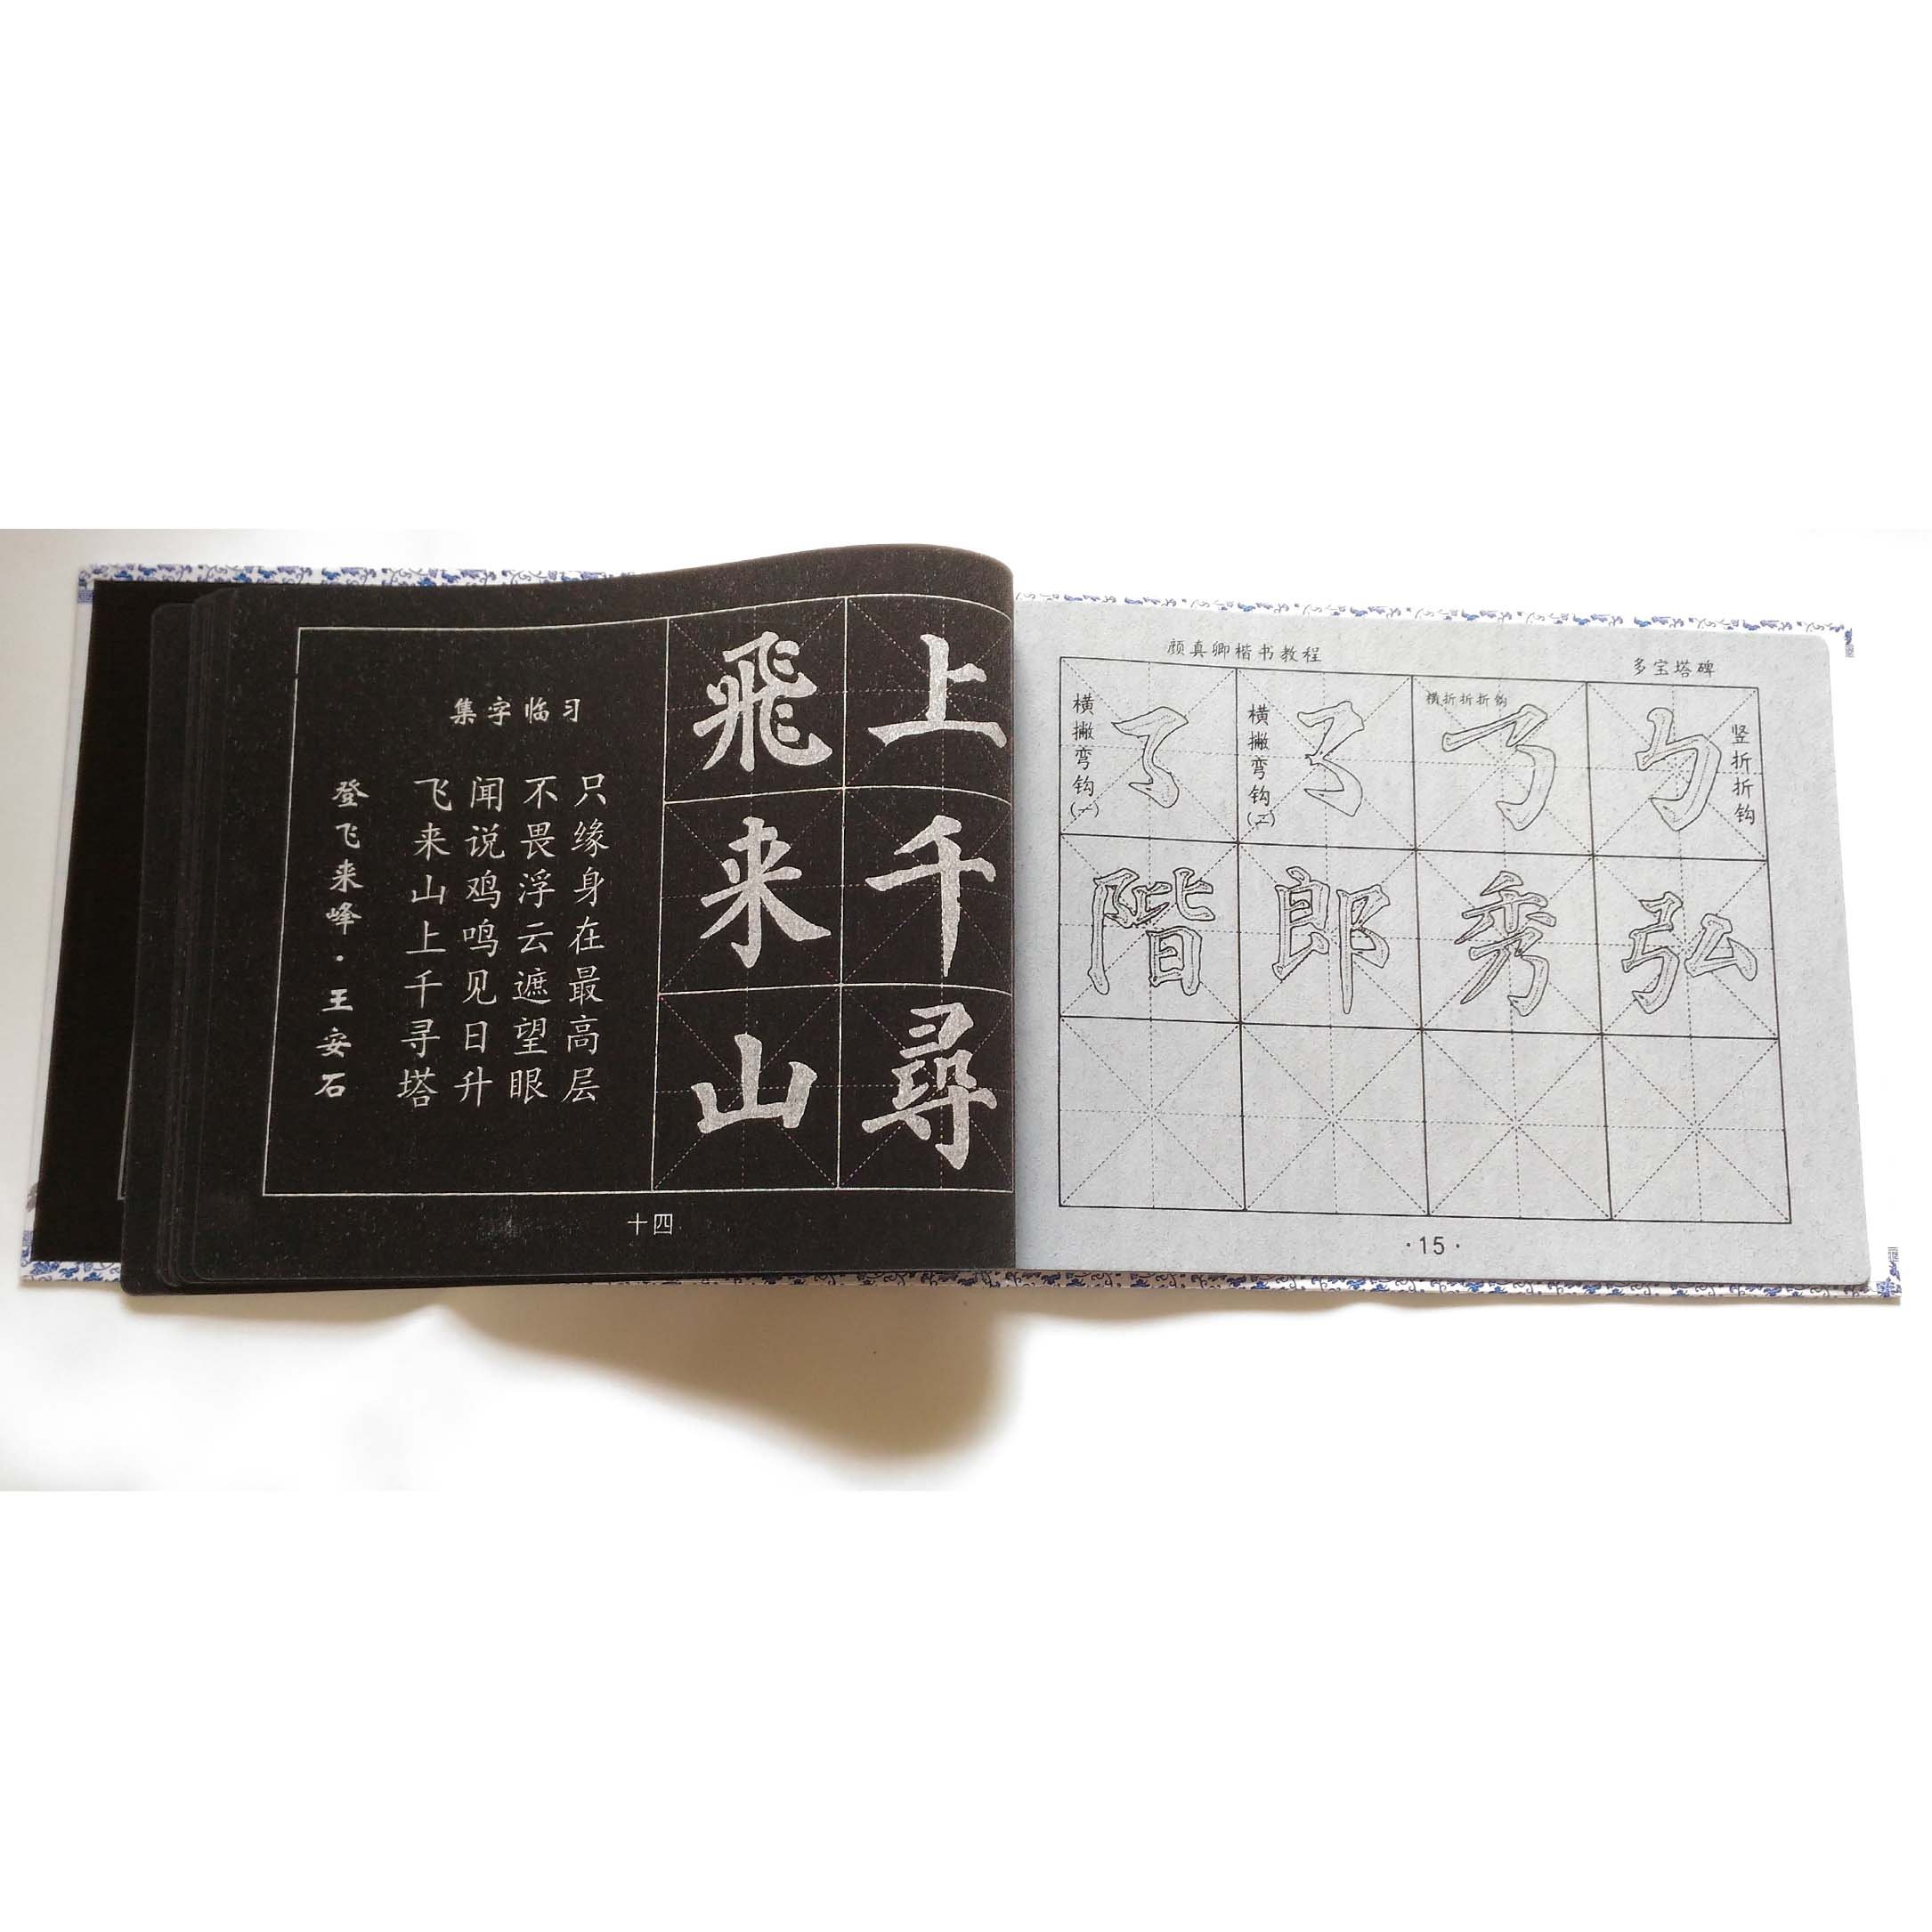 集字临习
登飞来峰·王安石
飞来山上千寻塔
闻说鸡鸣见日升
不畏浮云遮望眼
只缘身在最高层
飛来山
上千尋
十四
颜真卿楷书教程
多宝塔碑
横撇弯钩(一)
横撇弯钩(二)
横折折折钩
竖折折钩
階郎秀弘
·15·